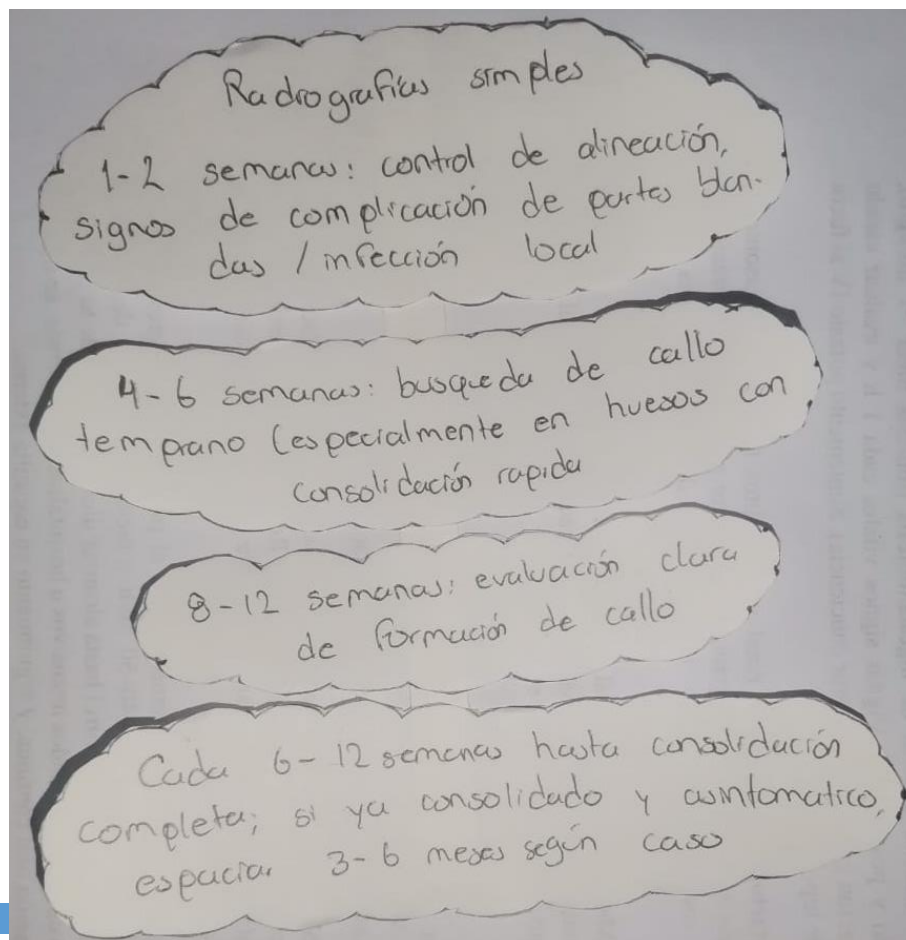 Radiografías simples
1-2 semanas: control de alineación,
signos de complicación de partes blan-
das / infección local
4-6 semanas: busqueda de callo
temprano (especialmente en huesos con
consolidación rapida
8-12 semanas: evaluación clara
de formación de callo
Cada 6-12 semanas hasta consolidación
completa; si ya consolidado y asintomatico,
espaciar 3-6 meses según caso